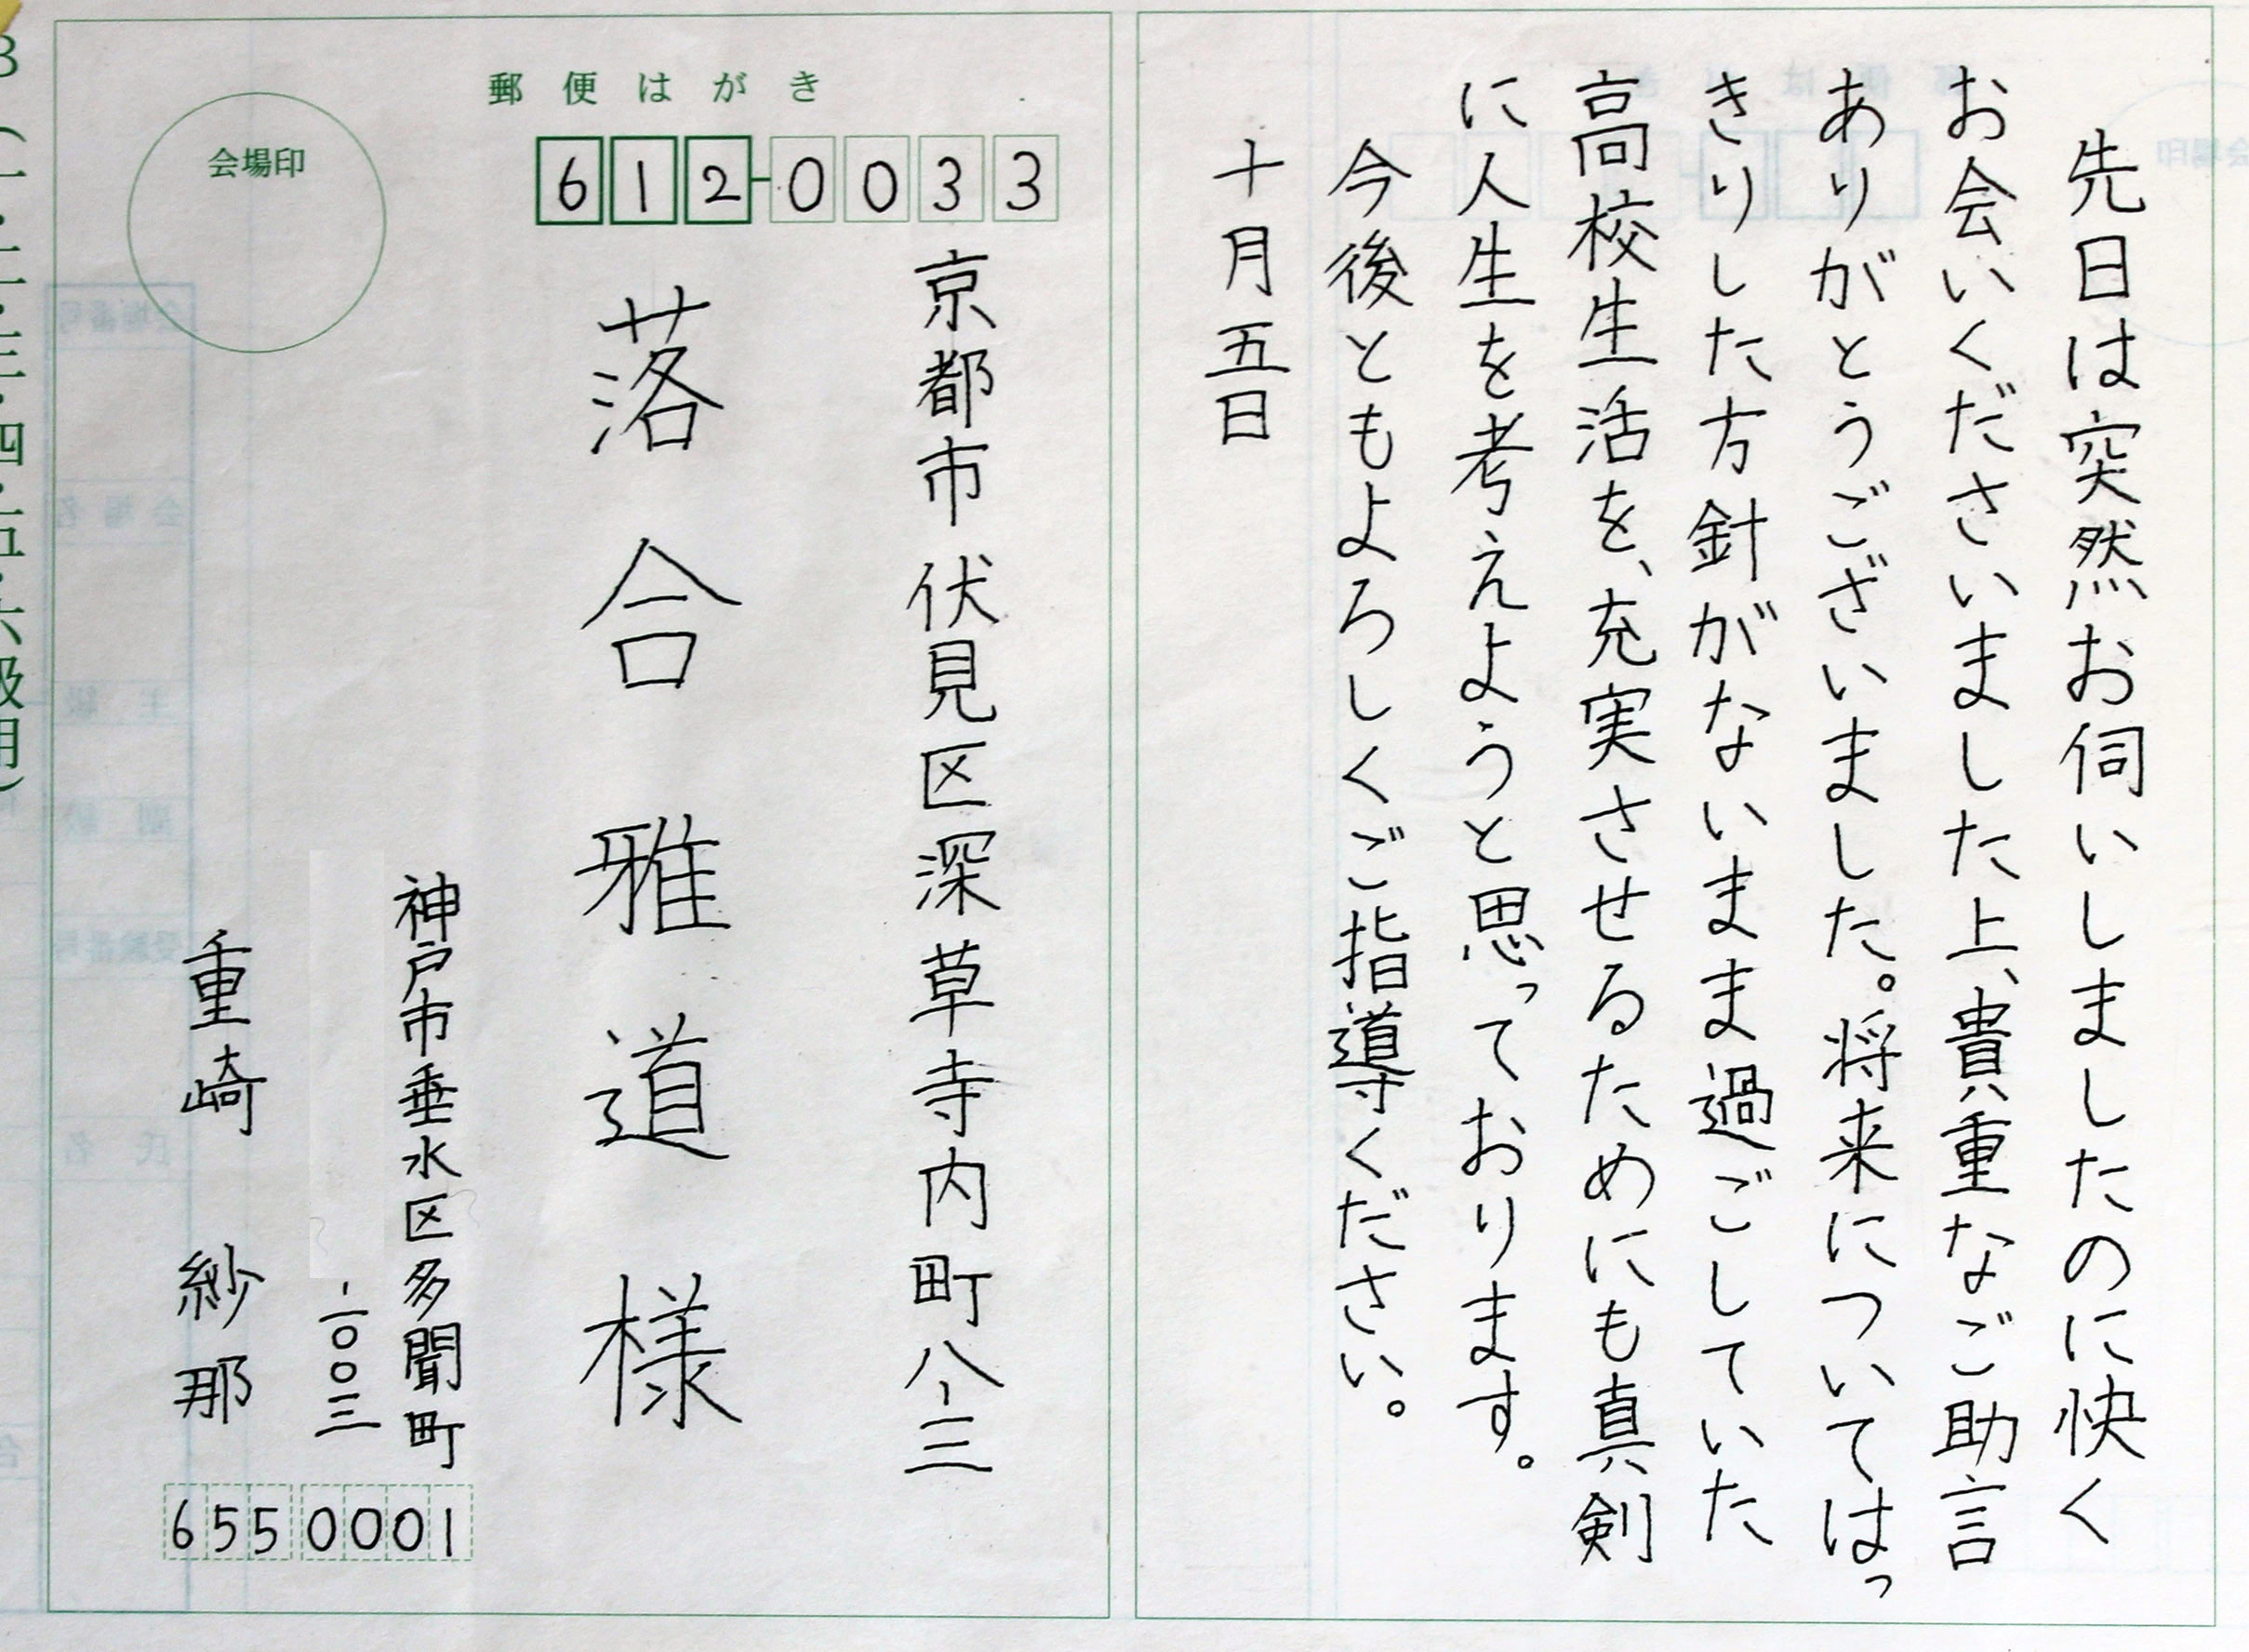 先日は突然お伺いしましたのに快く
お会いくださいました上、貴重なご助言
ありがとうございました。将来についてはっ
きりした方針がないまま過ごしていた
高校生活を、充実させるためにも真剣
に人生を考えようと思っております。
今後ともよろしくご指導ください。
十月五日
郵便はがき
会場印
612-0033
京都市伏見区深草寺内町八-三
落合雅道様
神戸市垂水区多聞町
-一〇〇三
重崎紗那
6550001